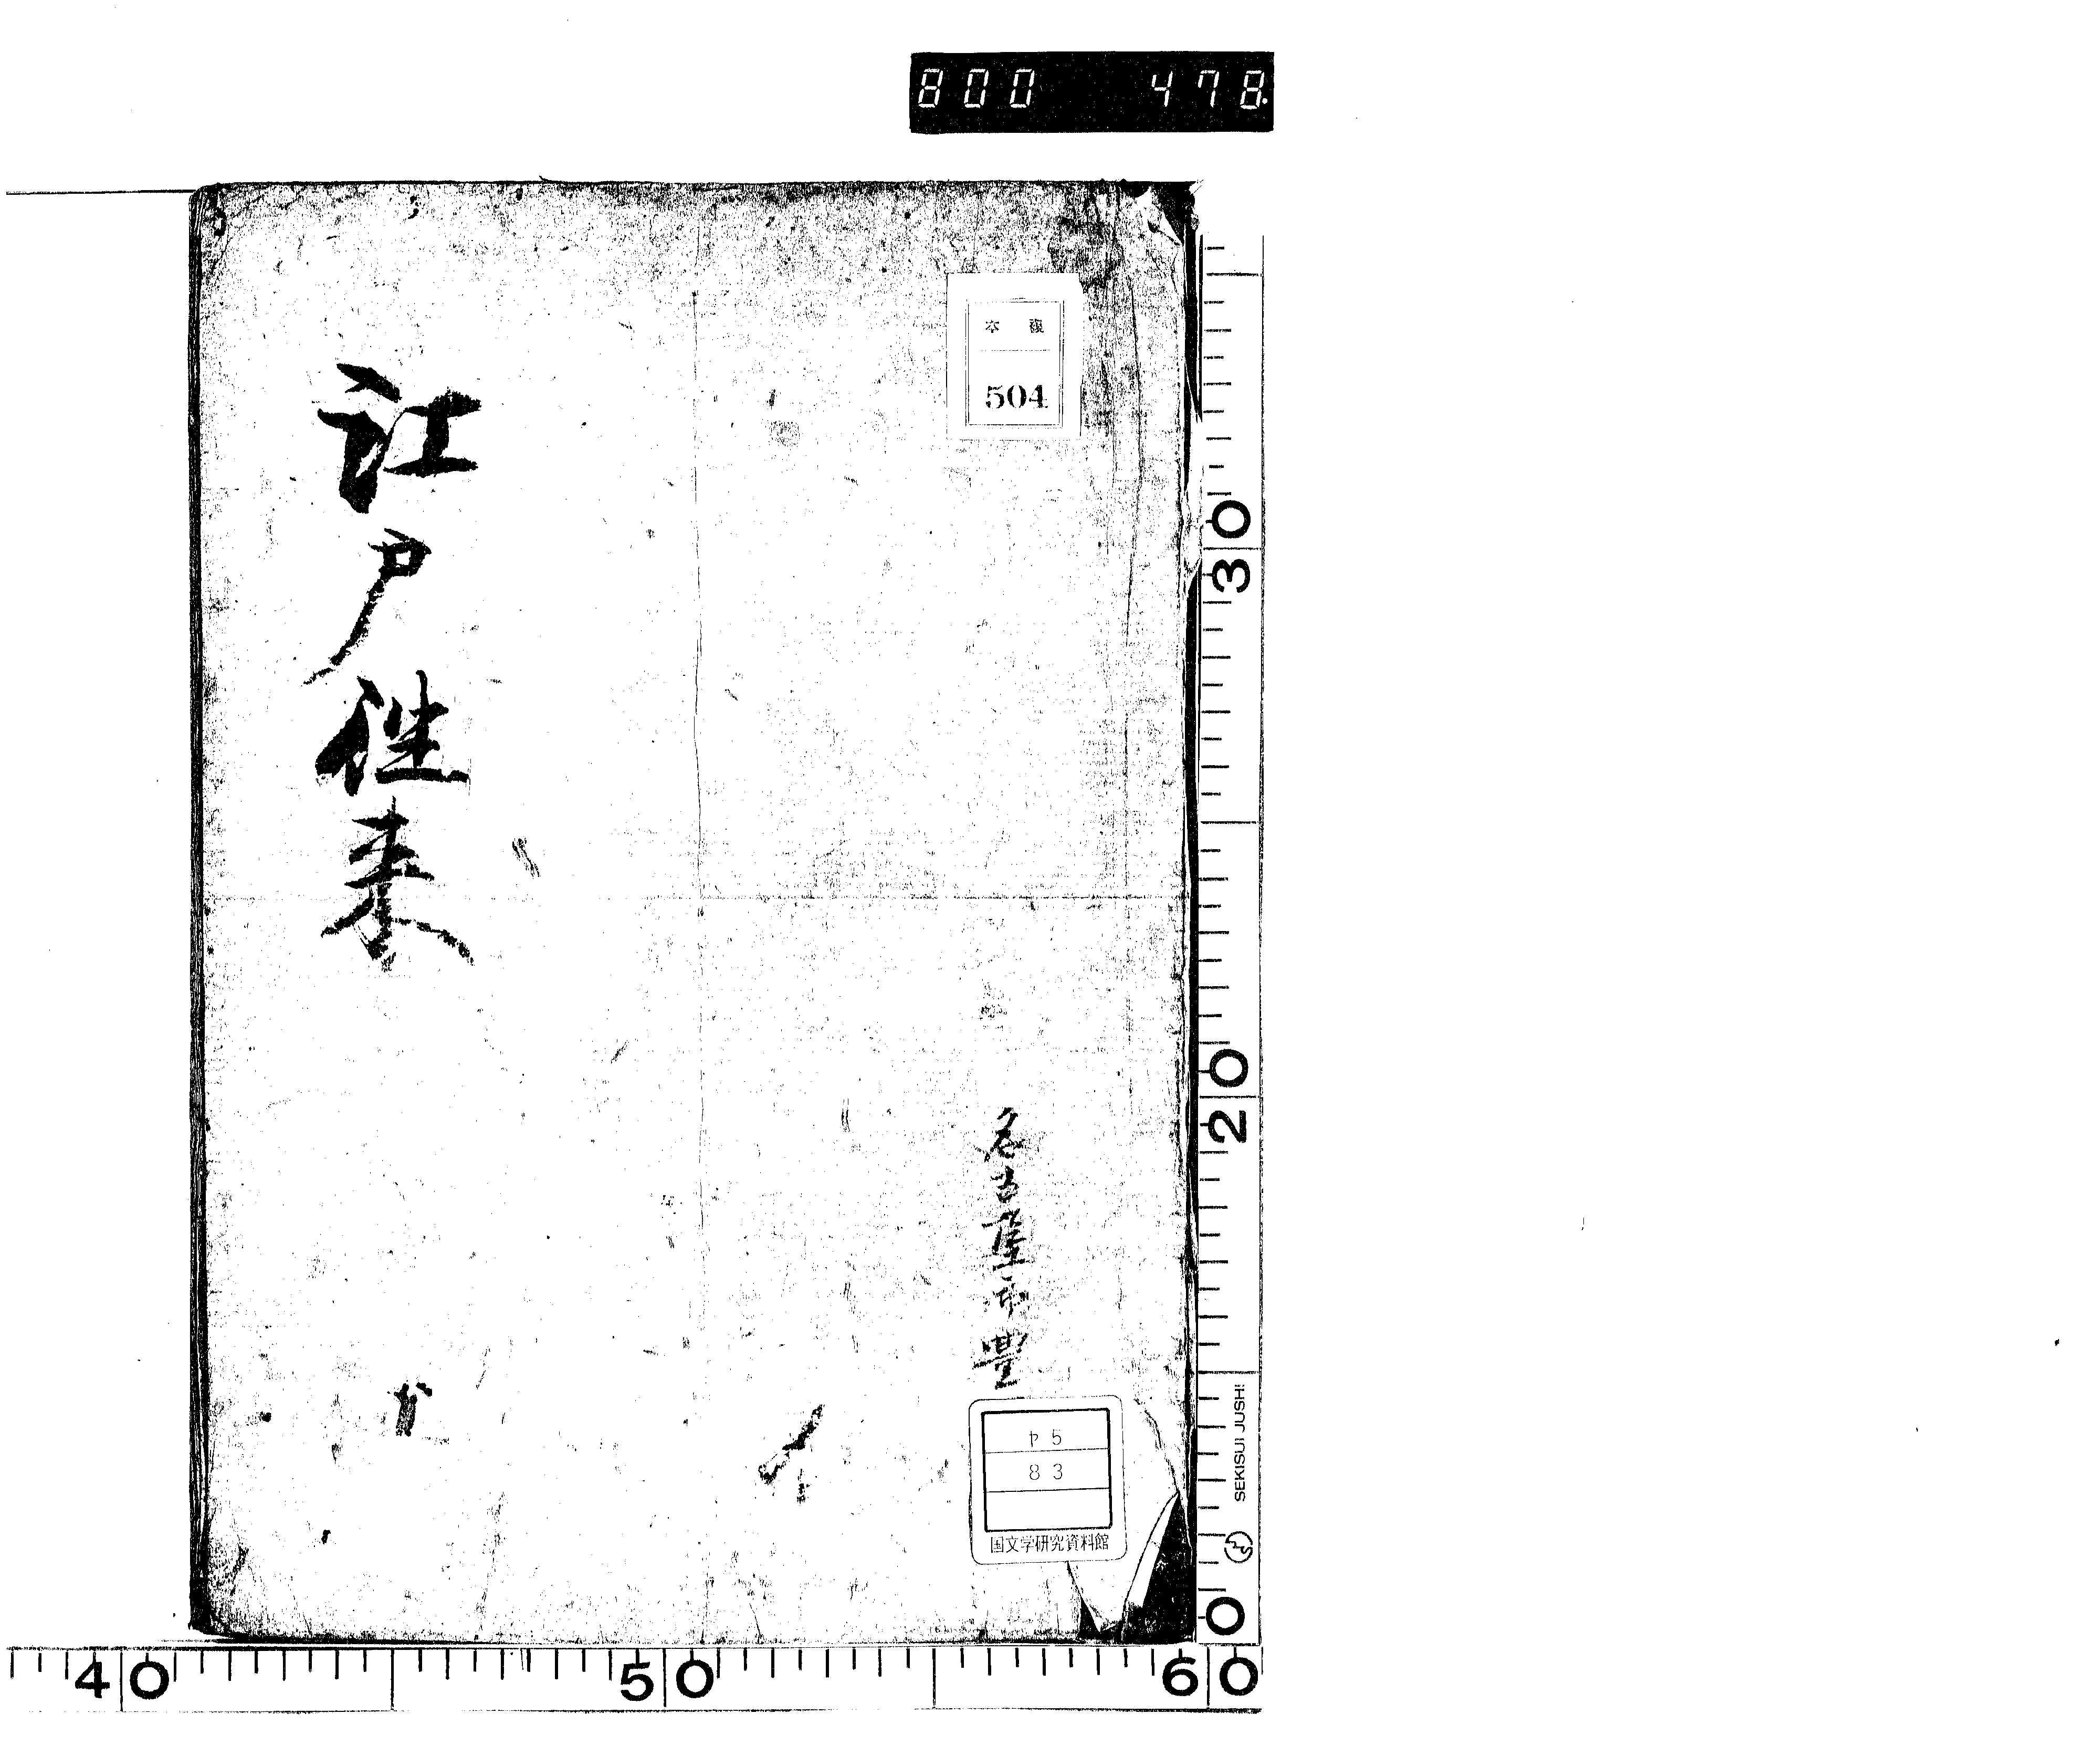 800 478.
本 複
504
江戸往来
名古屋
豊
ヤ5
83
国文学研究資料館
30
20
0
SEKISUI JUSHI
40
50
60